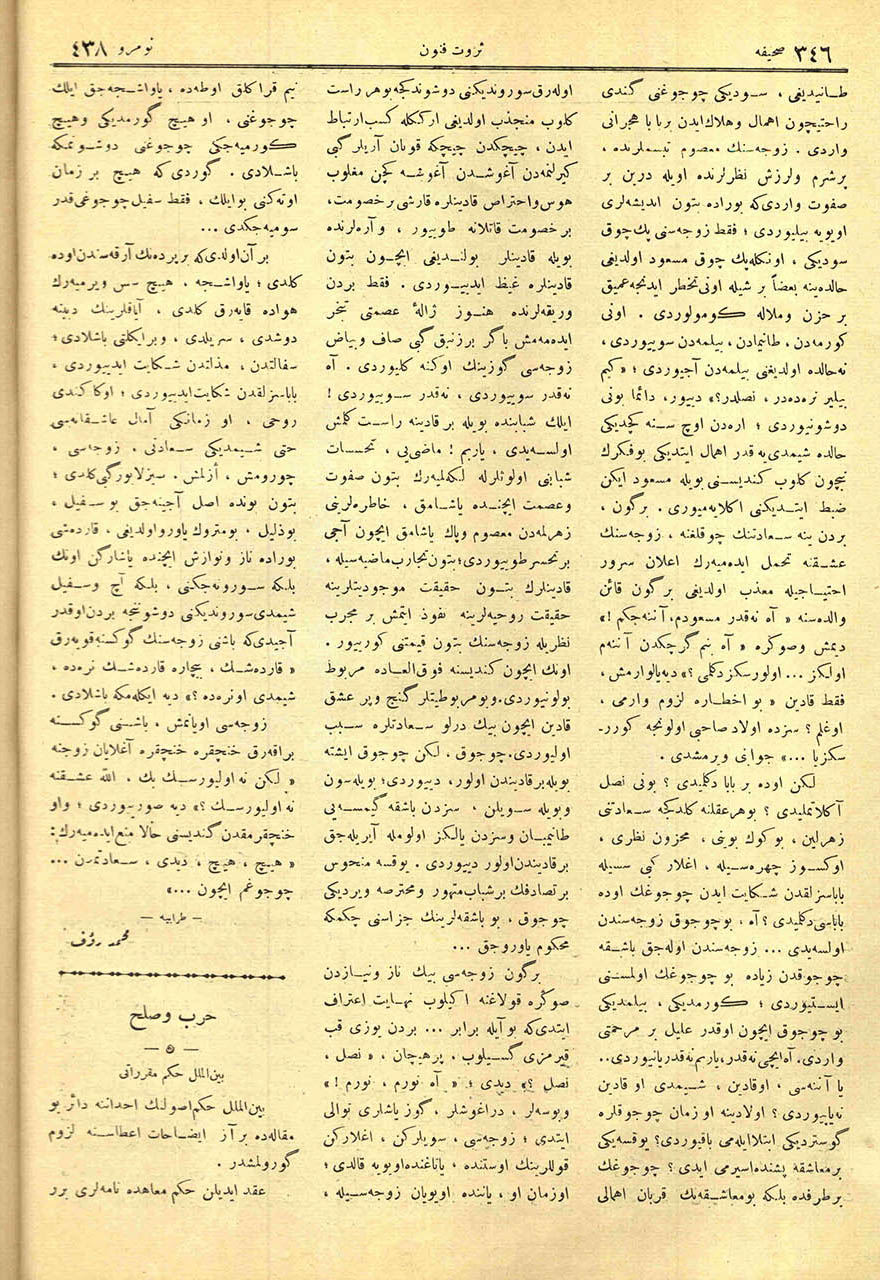 ٣٤٦ صحیفه
ثروت فنون
نومرو ٤٣٨
طانیدیغی ، سودیکی چوجوغنی کندی
راحتیچون اهمال وهلاك ایدن بر بابا هجرانی
واردی . زوجه‌سنك معصوم تبسملرنده ،
پرشرم ولرزش نظرلرنده اویله درین بر
صفوت واردی‌که بوراده بتون اندیشه‌لری
اویویه بیلیوردی ؛ فقط زوجه‌سنی پك‌چوق
سودیکی ، اونکله‌پك چوق مسعود اولدیغی
حالده‌ینه بعضاً بر شیله اونی تخطر ایدنجه‌عمیق
بر حزن وملاله کومولوردی . اونی
کورمه‌دن ، طانیمادن ، بیلمه‌دن سوییوردی ،
نه‌حالده اولدیغنی بیلمه‌دن آجیوردی ؛ « کیم
بیلیر نره‌ده‌در ، نصلدر؟» دییور، دائما بونی
دوشونیوردی ؛ اره‌دن اوچ سنه کچدیکی
حالده شیمدی‌یه قدر اهمال ایتدیکی بوفکرك
نیچون کلوب کندیسنی بویله مسعود ایکن
ضبط ایتدیکنی اکلایه‌میوری . برگون ،
بردن ینه سعادتنك چوقلغنه ، زوجه‌سنك
عشقنه تحمل ایده‌میه‌رك اعلان سرور
احتیاجیله معذب اولدیغی برگون قائن
والده‌سنه « آه نه‌قدر مسعودم، آننه‌جکم !»
دیمش وصوکره « آه بنم گرچکدن آننه‌م
اولکز ... اولورسکز دکلمی ؟» دیه‌یالوارمش ،
فقط قادین « بو اخطاره لزوم وارمی ،
اوغلم ؟ سزده اولاد صاحبی اولونجه کورر-
سکزیا ...» جوابنی ویرمشدی .
لکن اوده بر بابا دکلیدی ؟ بونی نصل
آکلاتملیدی ؟ بوهر عقلنه کلدکجه سعادتنی
زهرلین ، بوکوك بونی ، محزون نظری ،
اوکسوز چهره‌سیله ، اغلار کبی سسیله
باباسزلقدن شکایت ایدن چوجوغك اوده
باباسی دکلیدی ؟ آه ، بوچوجوق زوجه‌سندن
اولسه‌یدی ... زوجه‌سندن اوله‌جق باشقه
چوجوقدن زیاده بو چوجوغك اولمسنی
ایستیوردی ؛ کورمدیکی ، بیلمدیکی
بو چوجوق ایچون اوقدر علیل بر مرحمتی
واردی. آه‌ایچی نه‌قدر، یاربم نه‌قدریانیوردی..
یا آننه‌سی ، اوقادین ، شیمدی او قادین
نه‌یاپیوردی ؟ اولادینه اوزمان چوجوقلره
گوستردیکی ابتلاایله‌می باقیوردی؟ یوقسه‌یکی
برمعاشقه پشنده‌اسیرمی ایدی ؟ چوجوغك
برطرفده بلکه بومعاشقه‌نك قربان اهمالی
اوله‌رق سوروندیکنی دوشوندکجه بوهر راست
کلوب منجذب اولدیغی ارککله کسب‌ارتباط
ایدن ، چیچکدن چیچکه قونان آریلرگبی
کیرلنمه‌دن آغوشدن آغوشه کچن مغلوب
هوس‌واحتراص قادینلره قارشی برخصومت،
برخصومت قاتلانه طوییور ، وآره‌لرنده
بویله قادینلر بولندیغی ایچون بتون
قادینلره غیظ ایدییوردی . فقط بردن
وریقه‌لرنده هنوز ژالهٔ عصمتی تبخر
ایده‌مه‌مش باکر برزنبق گبی صاف وبیاض
زوجه‌سی گوزینك اوکنه کلیوردی . آه
نه‌قدر سوییوردی ، نه‌قدر سوییوردی !
ایلك شبابنده بویله بر قادینه راست کلمش
اولسه‌یدی ، یاربم ! ماضی‌یی ، تحسسات
شبابنی اولوثلرله لکه‌لمیه‌رك بتون صفوت
وعصمت ایچنده یاشامق ، خاطره‌لرینی
زهرلمه‌دن معصوم وپاك یاشامق ایچون آجی
برتحسر طوییوردی؛ بتون‌تجارب‌ماضیه‌سیله ،
قادینلرك بتون حقیقت موجودیتلرینه
حقیقت روحیه‌لرینه نفوذ ایتمش بر مجرب
نظریله زوجه‌سنك بتون قیمتنی کورییور .
اونك ایچون کندیسنه فوق‌العاده مربوط
بولونیوردی.وبومربوطیتلر گنج وپر عشق
قادین ایچون بیك درلو سعادتلره سبب
اولیوردی. چوجوق ، لکن چوجوق ایشته
بویله‌برقادیندن اولور، دییوردی؛ بویله‌سون
وبویله سویلن ، سزدن باشقه کیمسه‌یی
طانیمیان وسزدن یالکز اولومله آیریله‌جق
برقادیندن‌اولور دییوردی . یوقسه منحوس
برتصادفك برشباب‌متهور ومحترصه ویردیکی
چوجوق ، بو باشقه‌لرینك جزاسنی چکمکه
محکوم یاوروجق ...
برگون زوجه‌سی بیك ناز ونیازدن
صوکره قولاغنه اکیلوب نهایت اعتراف
ایتدی‌که بوآیله برابر ... بردن یوزی قپ
قیرمزی کسیلوب . پرهیجان ، « نصل ،
نصل ؟» دیدی ؛ « آه نورم ، نورم !»
وبوسه‌لر ، دراغوشلر ، گوز یاشلری توالی
ایتدی ؛ زوجه‌سی ، سویلرکن ، اغلارکن
قوللرینك اوستنده ، یاناغنده‌اویویه قالدی ؛
اوزمان او ، یاننده اویویان زوجه‌سیله ،
نیم قراکلق اوطه‌ده ، یاواشجه‌جق ایلك
چوجوغنی ، او هیچ گورمدیکی وهیچ
کورمیه‌جکی چوجوغنی دوشونمکه
باشلادی . گوردی‌که هیچ بر زمان
اوته‌کنی بوایلك ، فقط سفیل چوجوغی‌قدر
سومیه‌جکدی ...
بر آن اولدی‌که بر پرده‌نك آرقه‌سندن‌اوده
کلدی ؛ یاواشجه ، هیچ سس ویرمیه‌رك
هواده قایه‌رق کلدی ، آیاقلرینك دیبنه
دوشدی ، سریلدی ، وبرایکلتی باشلادی ؛
سفالتدن ، مذلتدن شکایت ایدییوردی ،
باباسزلقدن شکایت‌ایدییوردی ؛ اوکاکندی
روحی ، او زمانکی آمال عاشقانه‌سی
حتی شیمدیکی سعادتی . زوجه‌سی ،
چورومش ، أزلمش . سیزلایورگبی‌کلدی ؛
بتون بونده اصل آجینه‌جق بوسفیل ،
بوذلیل ، بومتروك یاورواولدیغی ، قارده‌شی
بوراده ناز ونوازش ایچنده یاشارگن اونك
بلکه سورونه‌جکنی ، بلکه آچ وسفیل
شیمدی‌سوروندیکنی دوشوننجه بردن‌اوقدر
آجیدی‌که باشنی زوجه‌سنك گوکسنه‌قویه‌رق
« قارده‌شك ، بیچاره قارده‌شك نره‌ده ،
شیمدی اونره‌ده ؟» دیه ایکله‌مکه باشلادی .
زوجه‌سی اویانمش ، باشنی گوکسنه
براقه‌رق خنچقره خنچقره آغلایان زوجنه
« لکن نه اولیورسك بك . الله عشقنه
نه اولیورسك ؟» دیه صورییوردی ؛ واو
خنچقرمقدن کندیسنی حالا منع‌ایده‌میه‌رك:
« هیچ ، هیچ ، دیدی ، سعادتمدن ...
چوجوغم ایچون ...»
— طرابیه —
محمد رؤف
حرب وصلح
— ٥ —
بین‌الملل حکم مقرراتی
بین‌الملل حکم‌اصولنك احداثنه دائر بو
مقاله‌ده بر آز ایضاحات اعطاسنه لزوم
گورولمشدر .
عقد ایدیلن حکم معاهده نامه‌لری برر